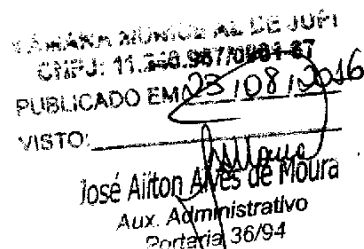 CÂMARA MUNICIPAL DE JUPI
CNPJ: 11.240.967/0001-87
PUBLICADO EM 23/08/2016
VISTO:
José Ailton Alves de Moura
Aux. Administrativo
Portaria 36/94